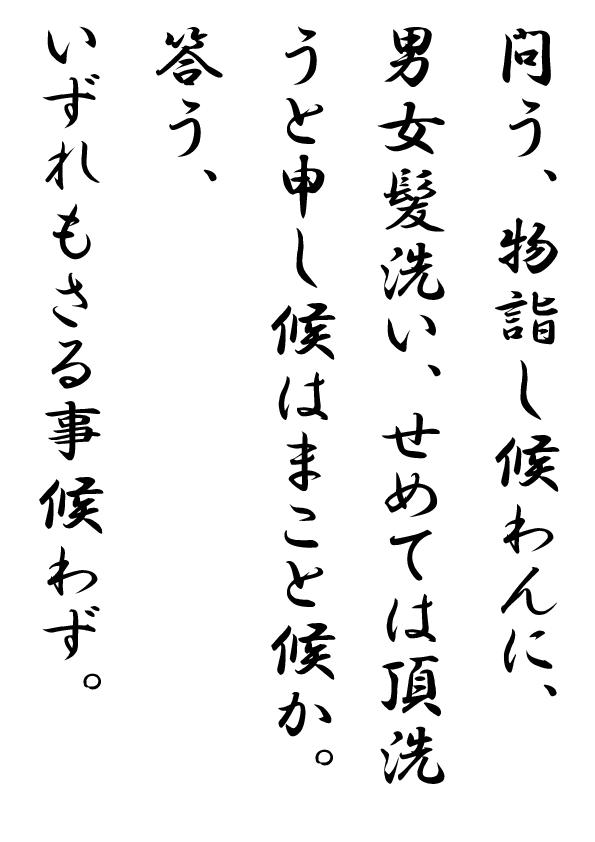 問う、物詣し候わんに、
男女髪洗い、せめては頂洗
うと申し候はまこと候か。
答う、
いずれもさる事候わず。